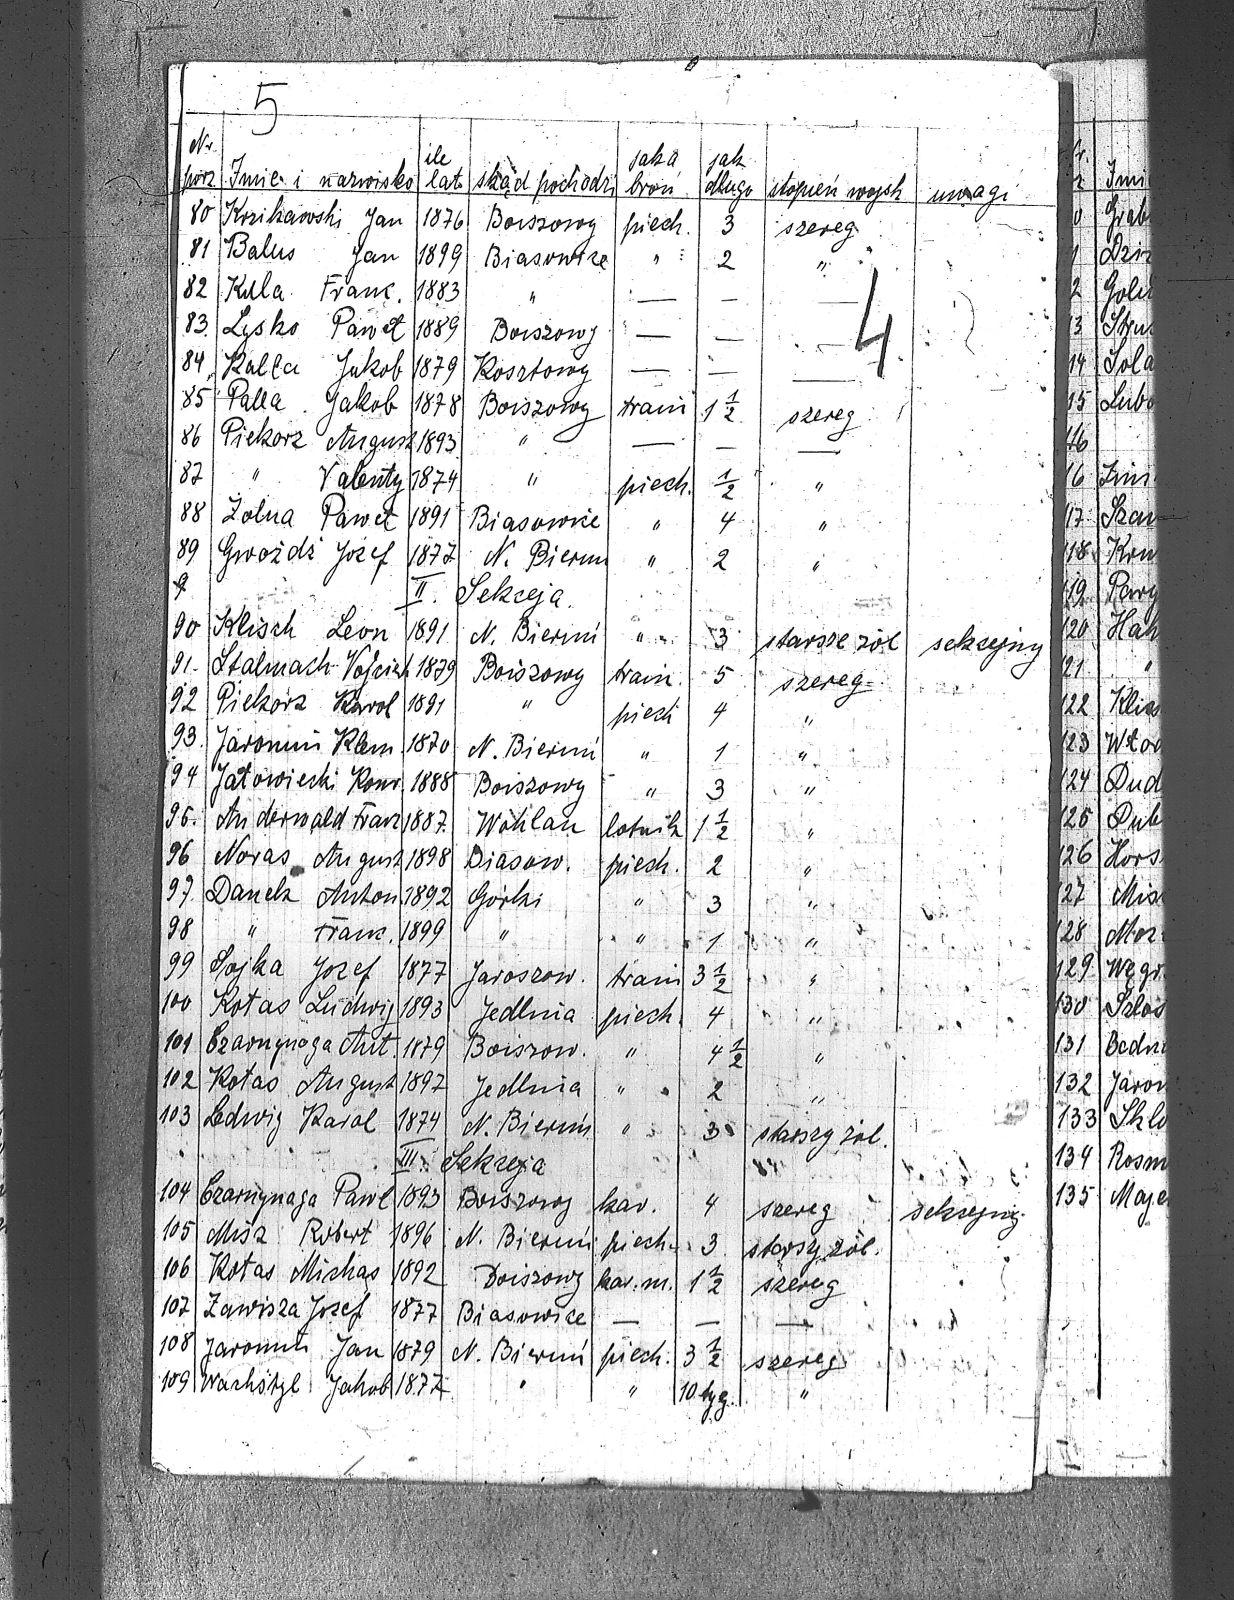 5
Nr. porz Imię i nazwisko ile lat skąd pochodzi jaka broń jak długo stopień wojsk uwagi
80 Krzikawski Jan 1876 Boiszowy piech. 3 szereg
81 Balus Jan 1899 Biasowice " 2 "
82 Kula Franc. 1883 " — — —
4
83. Lysko Paweł 1889 Boiszowy — — —
84. Kalla Jakob 1879 Kosztowy — — —
85 Palla Jakob 1878 Boiszowy train 1 1/2 szereg
86 Piekorz August 1893 " — — —
87 " Valenty 1874 " piech. 1/2 "
88 Żolna Paweł 1891 Biasowice " 4 "
89 Gwoźdź Jozef 1877 N. Bieruń " 2 "
9 II. Sekceja.
90 Klisch Leon 1891 N. Bieruń " 3 starsze żoł sekcejny
91. Stalmach Vojciech 1879 Boiszowy train. 5 szereg
92 Piekorz Karol 1891 " piech 4 "
93. Jaromin Klem. 1870 N. Bieruń " 1 "
94 Jatowiecki Konr. 1888 Boiszowy " 3 "
95. Anderwald Franz 1887. Wohlau lotnik 1 1/2 "
96 Noras August 1898 Biasow. piech. 2 "
97. Danek Anton 1892 Górki " 3 "
98 " Franc. 1899 " " 1 "
99 Sojka Jozef 1877 Jaroszow. train 3 1/2 "
100 Kotas Ludwig 1893 Jedlnia piech. 4 "
101 Czarnynoga Ant. 1879 Boiszow. " 4 1/2 "
102 Kotas August 1897 Jedlnia " 2 "
103 Ledwig Karol 1874 N. Bieruń " 3 starszy żoł.
III. Sekceja
104 Czarnynaga Pawl 1893 Boiszowy kav. 4 szereg sekcejny
105 Misz Robert 1896 N. Bieruń piech. 3 starsy żoł.
106 Kotas Michas 1892 Boiszowy kav. m. 1 1/2 szereg
107 Zawisza Jozef 1877 Biasowice — — —
108 Jaromin Jan 1879 N. Bieruń piech. 3 1/2 szereg
109 Wachstyl Jakob 1877 " " 10 tyg. "